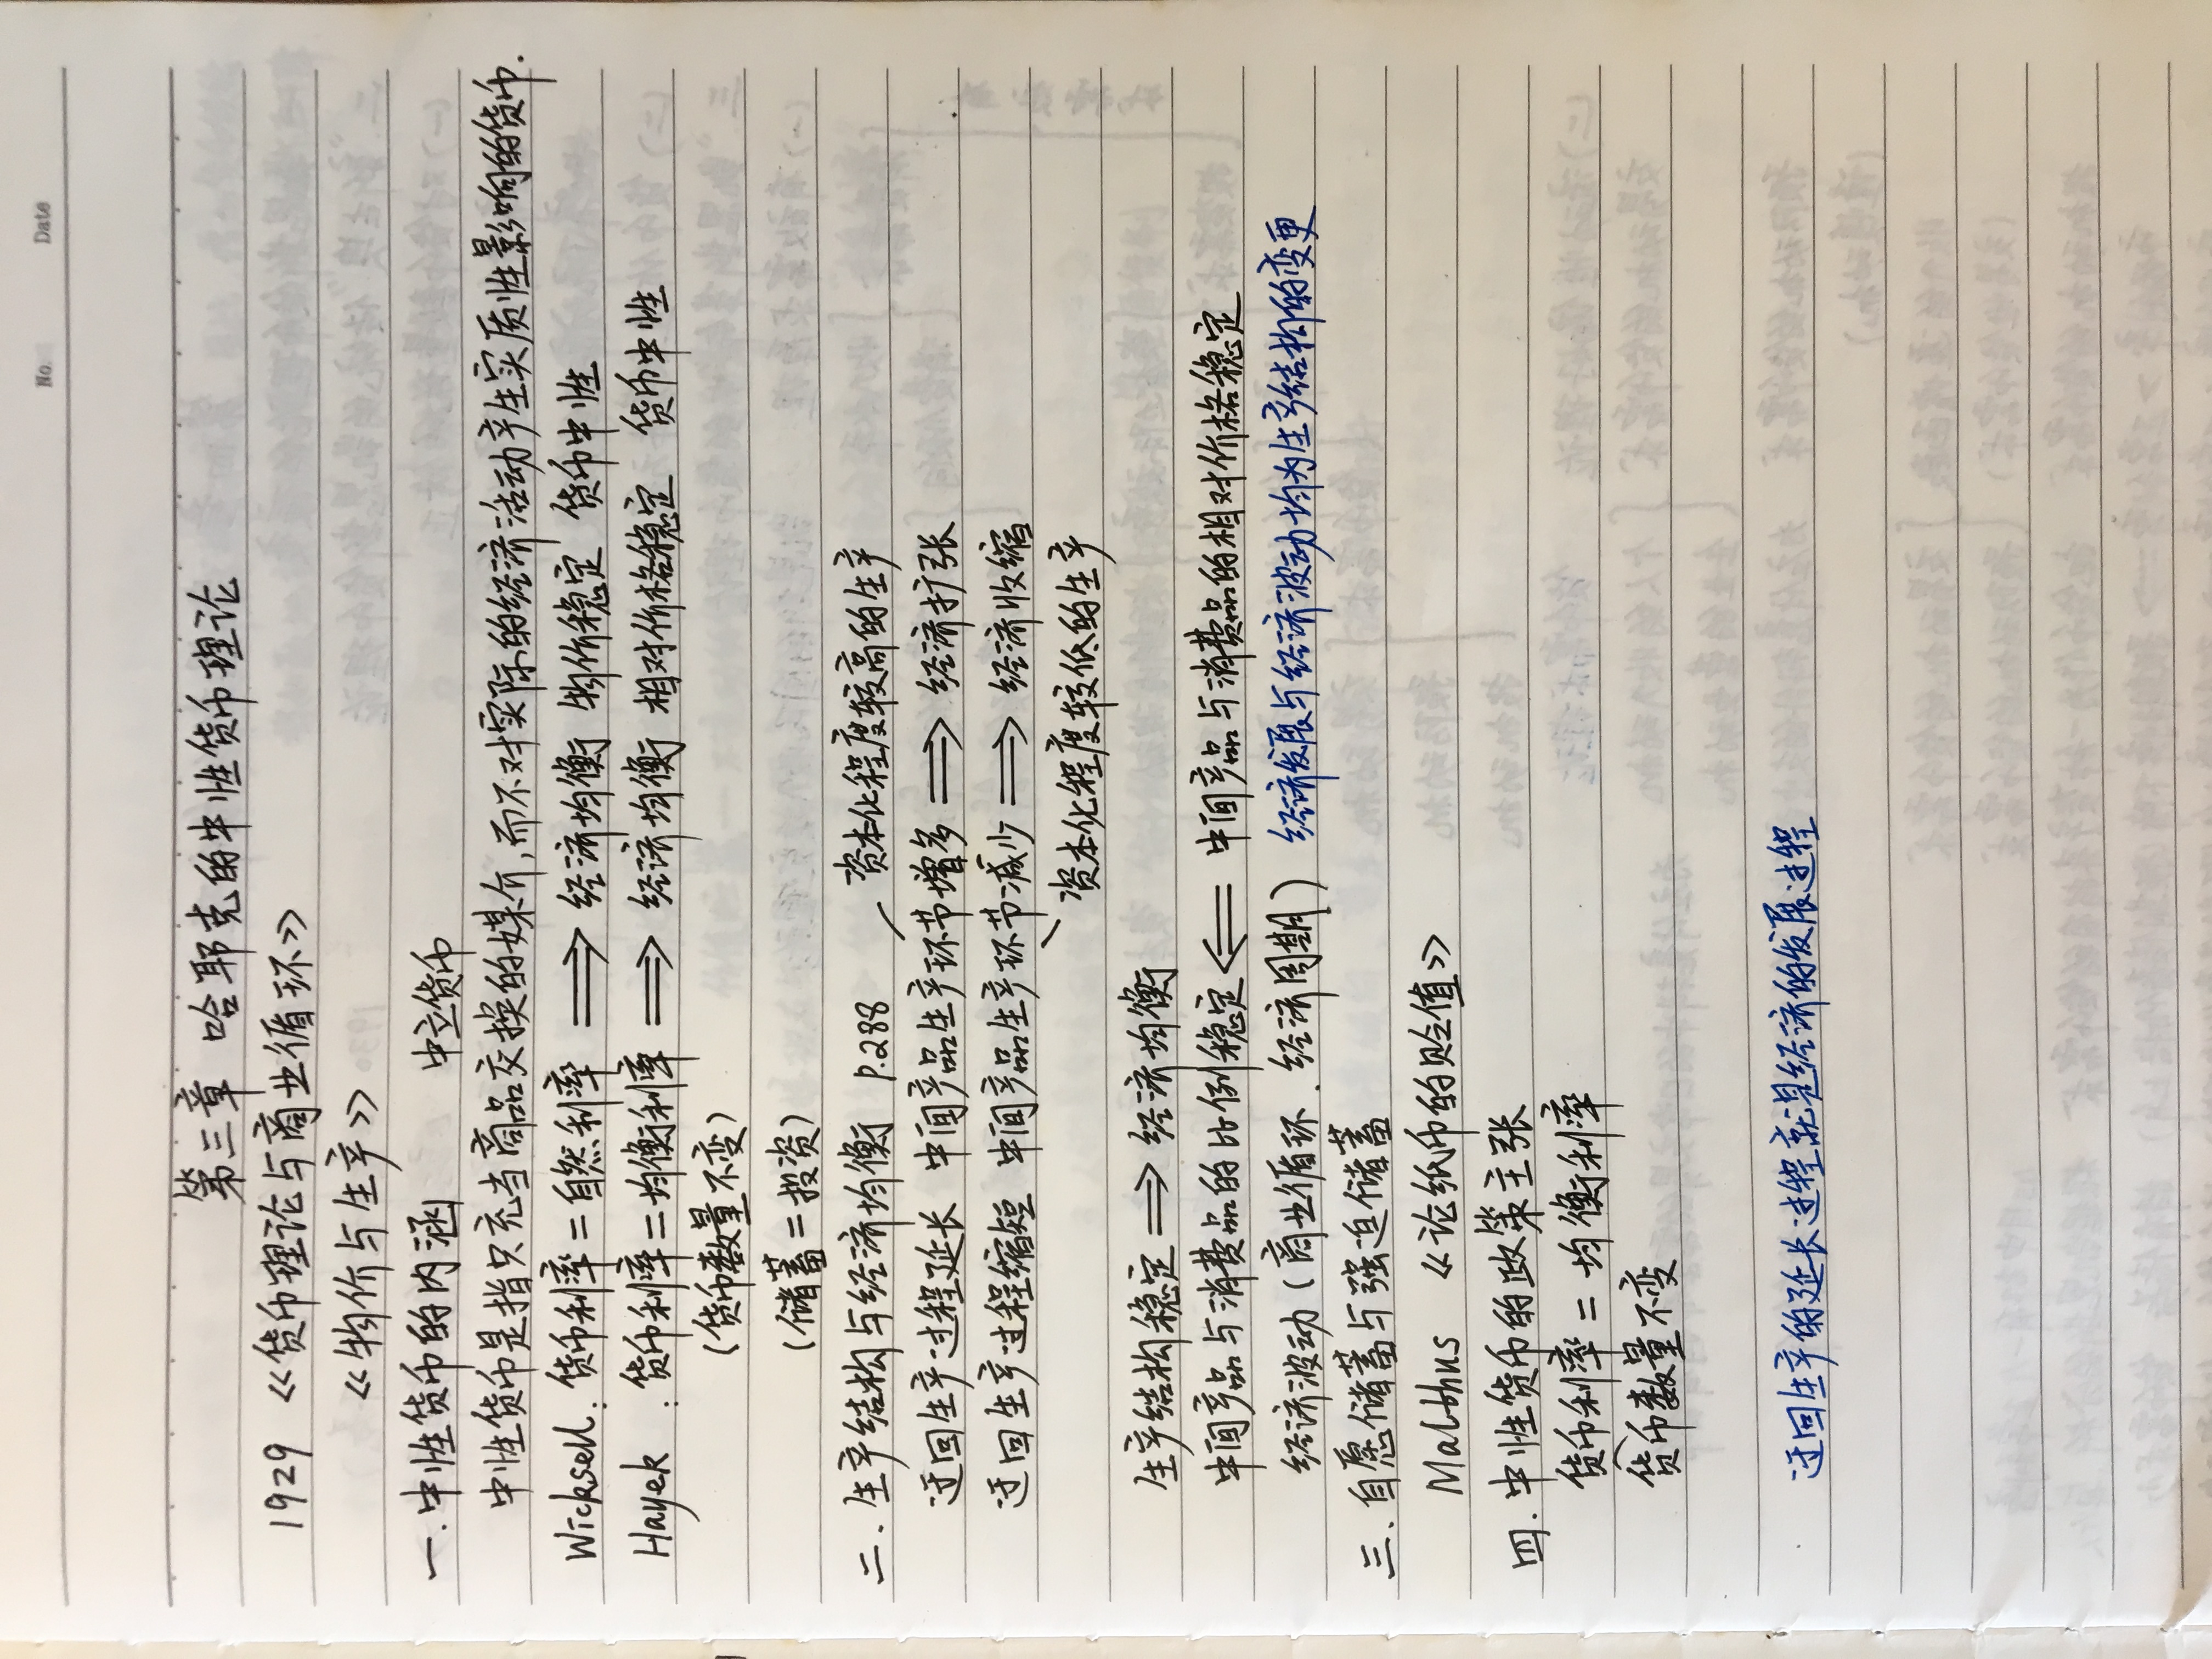 No.   Date
第三章 哈耶克的中性货币理论
1929 《货币理论与商业循环》
《物价与生产》
一.中性货币的内涵 中立货币
中性货币是指只充当商品交换的媒介,而不对实际的经济活动产生实质性影响的货币.
Wicksell: 货币利率=自然利率 ⟹ 经济均衡 物价稳定 货币中性
Hayek : 货币利率=均衡利率 ⟹ 经济均衡 相对价格稳定 货币中性
(货币数量不变)
(储蓄=投资)
二.生产结构与经济均衡 P.288 资本化程度较高的生产
迂回生产过程延长 中间产品生产环节增多 ⟹ 经济扩张
迂回生产过程缩短 中间产品生产环节减少 ⟹ 经济收缩
资本化程度较低的生产
生产结构稳定 ⟹ 经济均衡
中间产品与消费品的比例稳定 ⟸ 中间产品与消费品的相对价格稳定
经济波动(商业循环.经济周期) 经济发展与经济波动均为生产结构的变更
三.自愿储蓄与强迫储蓄
Malthus 《论纸币的贬值》
四.中性货币的政策主张
货币利率=均衡利率
货币数量不变
迂回生产的延长过程就是经济的发展过程